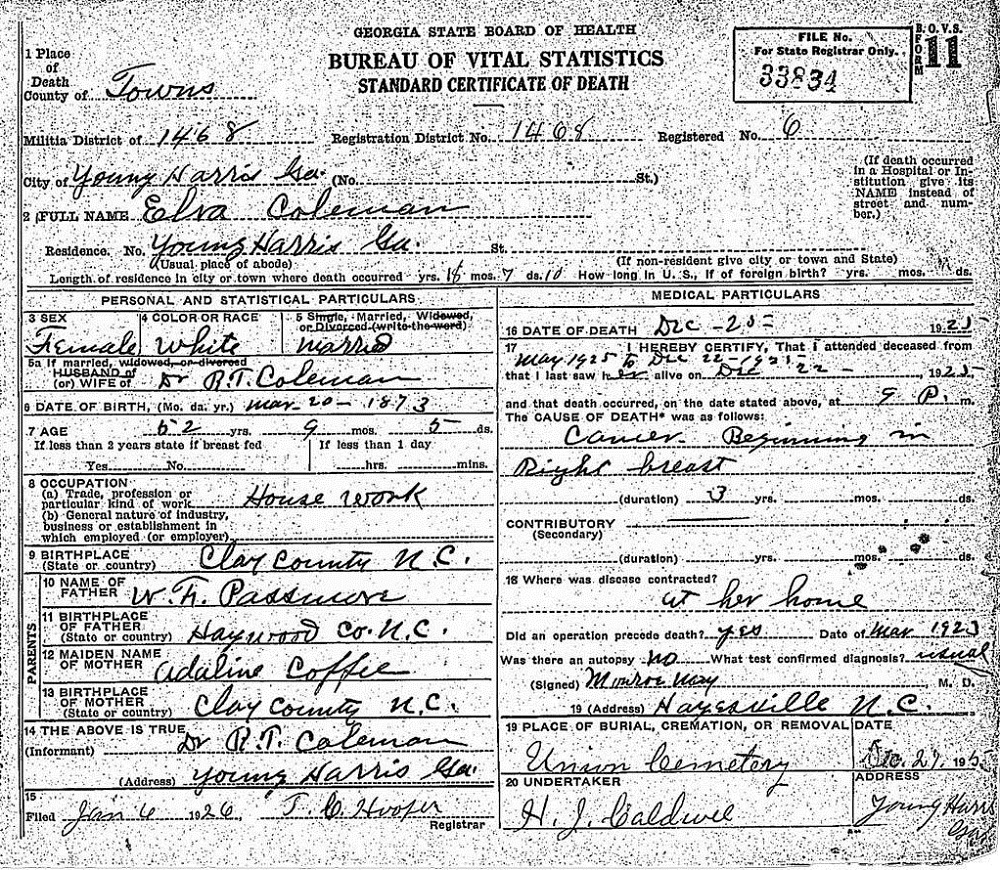 GEORGIA STATE BOARD OF HEALTH
BUREAU OF VITAL STATISTICS
STANDARD CERTIFICATE OF DEATH
FILE No.
For State Registrar Only.
33834
B.O.V.S.
FORM 11
1 Place
of
Death
County of Towns
Militia District of 1468 Registration District No. 1468 Registered No. 6
City of Young Harris Ga. (No. St.)
(If death occurred
in a Hospital or In-
stitution give its
NAME instead of
street and num-
ber.)
2 FULL NAME Elva Coleman
Residence. No. Young Harris Ga. St.
(Usual place of abode) (If non-resident give city or town and State)
Length of residence in city or town where death occurred yrs. mos. 7 ds. 10 How long in U. S., if of foreign birth? yrs. mos. ds.
PERSONAL AND STATISTICAL PARTICULARS
3 SEX
Female
4 COLOR OR RACE
White
5 Single, Married, Widowed,
or Divorced (write the word)
Married
5a If married, widowed, or divorced
HUSBAND of
(or) WIFE of Dr R.T. Coleman
6 DATE OF BIRTH, (Mo. da. yr.) Mar-20-1873
7 AGE 52 yrs. 9 mos. 5 ds.
If less than 2 years state if breast fed
Yes No
If less than 1 day
hrs. mins.
8 OCCUPATION
(a) Trade, profession or
particular kind of work House work
(b) General nature of industry,
business or establishment in
which employed (or employer)
9 BIRTHPLACE
(State or country) Clay County N.C.
PARENTS
10 NAME OF
FATHER W. H. Passmore
11 BIRTHPLACE
OF FATHER
(State or country) Haywood Co. N.C.
12 MAIDEN NAME
OF MOTHER Adaline Coffee
13 BIRTHPLACE
OF MOTHER
(State or country) Clay County N.C.
14 THE ABOVE IS TRUE
(Informant) Dr R.T. Coleman
(Address) Young Harris Ga.
15
Filed Jan 6 1926 T. C. Hooper
Registrar
MEDICAL PARTICULARS
16 DATE OF DEATH Dec - 25 - 1925
17 I HEREBY CERTIFY, That I attended deceased from
May 1925 to Dec 22-1925-
that I last saw her alive on Dec 22 - , 1925
and that death occurred, on the date stated above, at 9 P. m.
The CAUSE OF DEATH* was as follows:
Cancer Beginning in
Right breast
(duration) 3 yrs. mos. ds.
CONTRIBUTORY
(Secondary)
(duration) yrs. mos. ds.
18 Where was disease contracted?
at her home
Did an operation precede death? yes Date of Mar 1923
Was there an autopsy no What test confirmed diagnosis? usual
(Signed) Monroe May M. D.
19 (Address) Hayesville N.C.
19 PLACE OF BURIAL, CREMATION, OR REMOVAL
Union Cemetery
DATE
Dec. 27, 195
20 UNDERTAKER
H. J. Caldwell
ADDRESS
Young Harris
Ga.